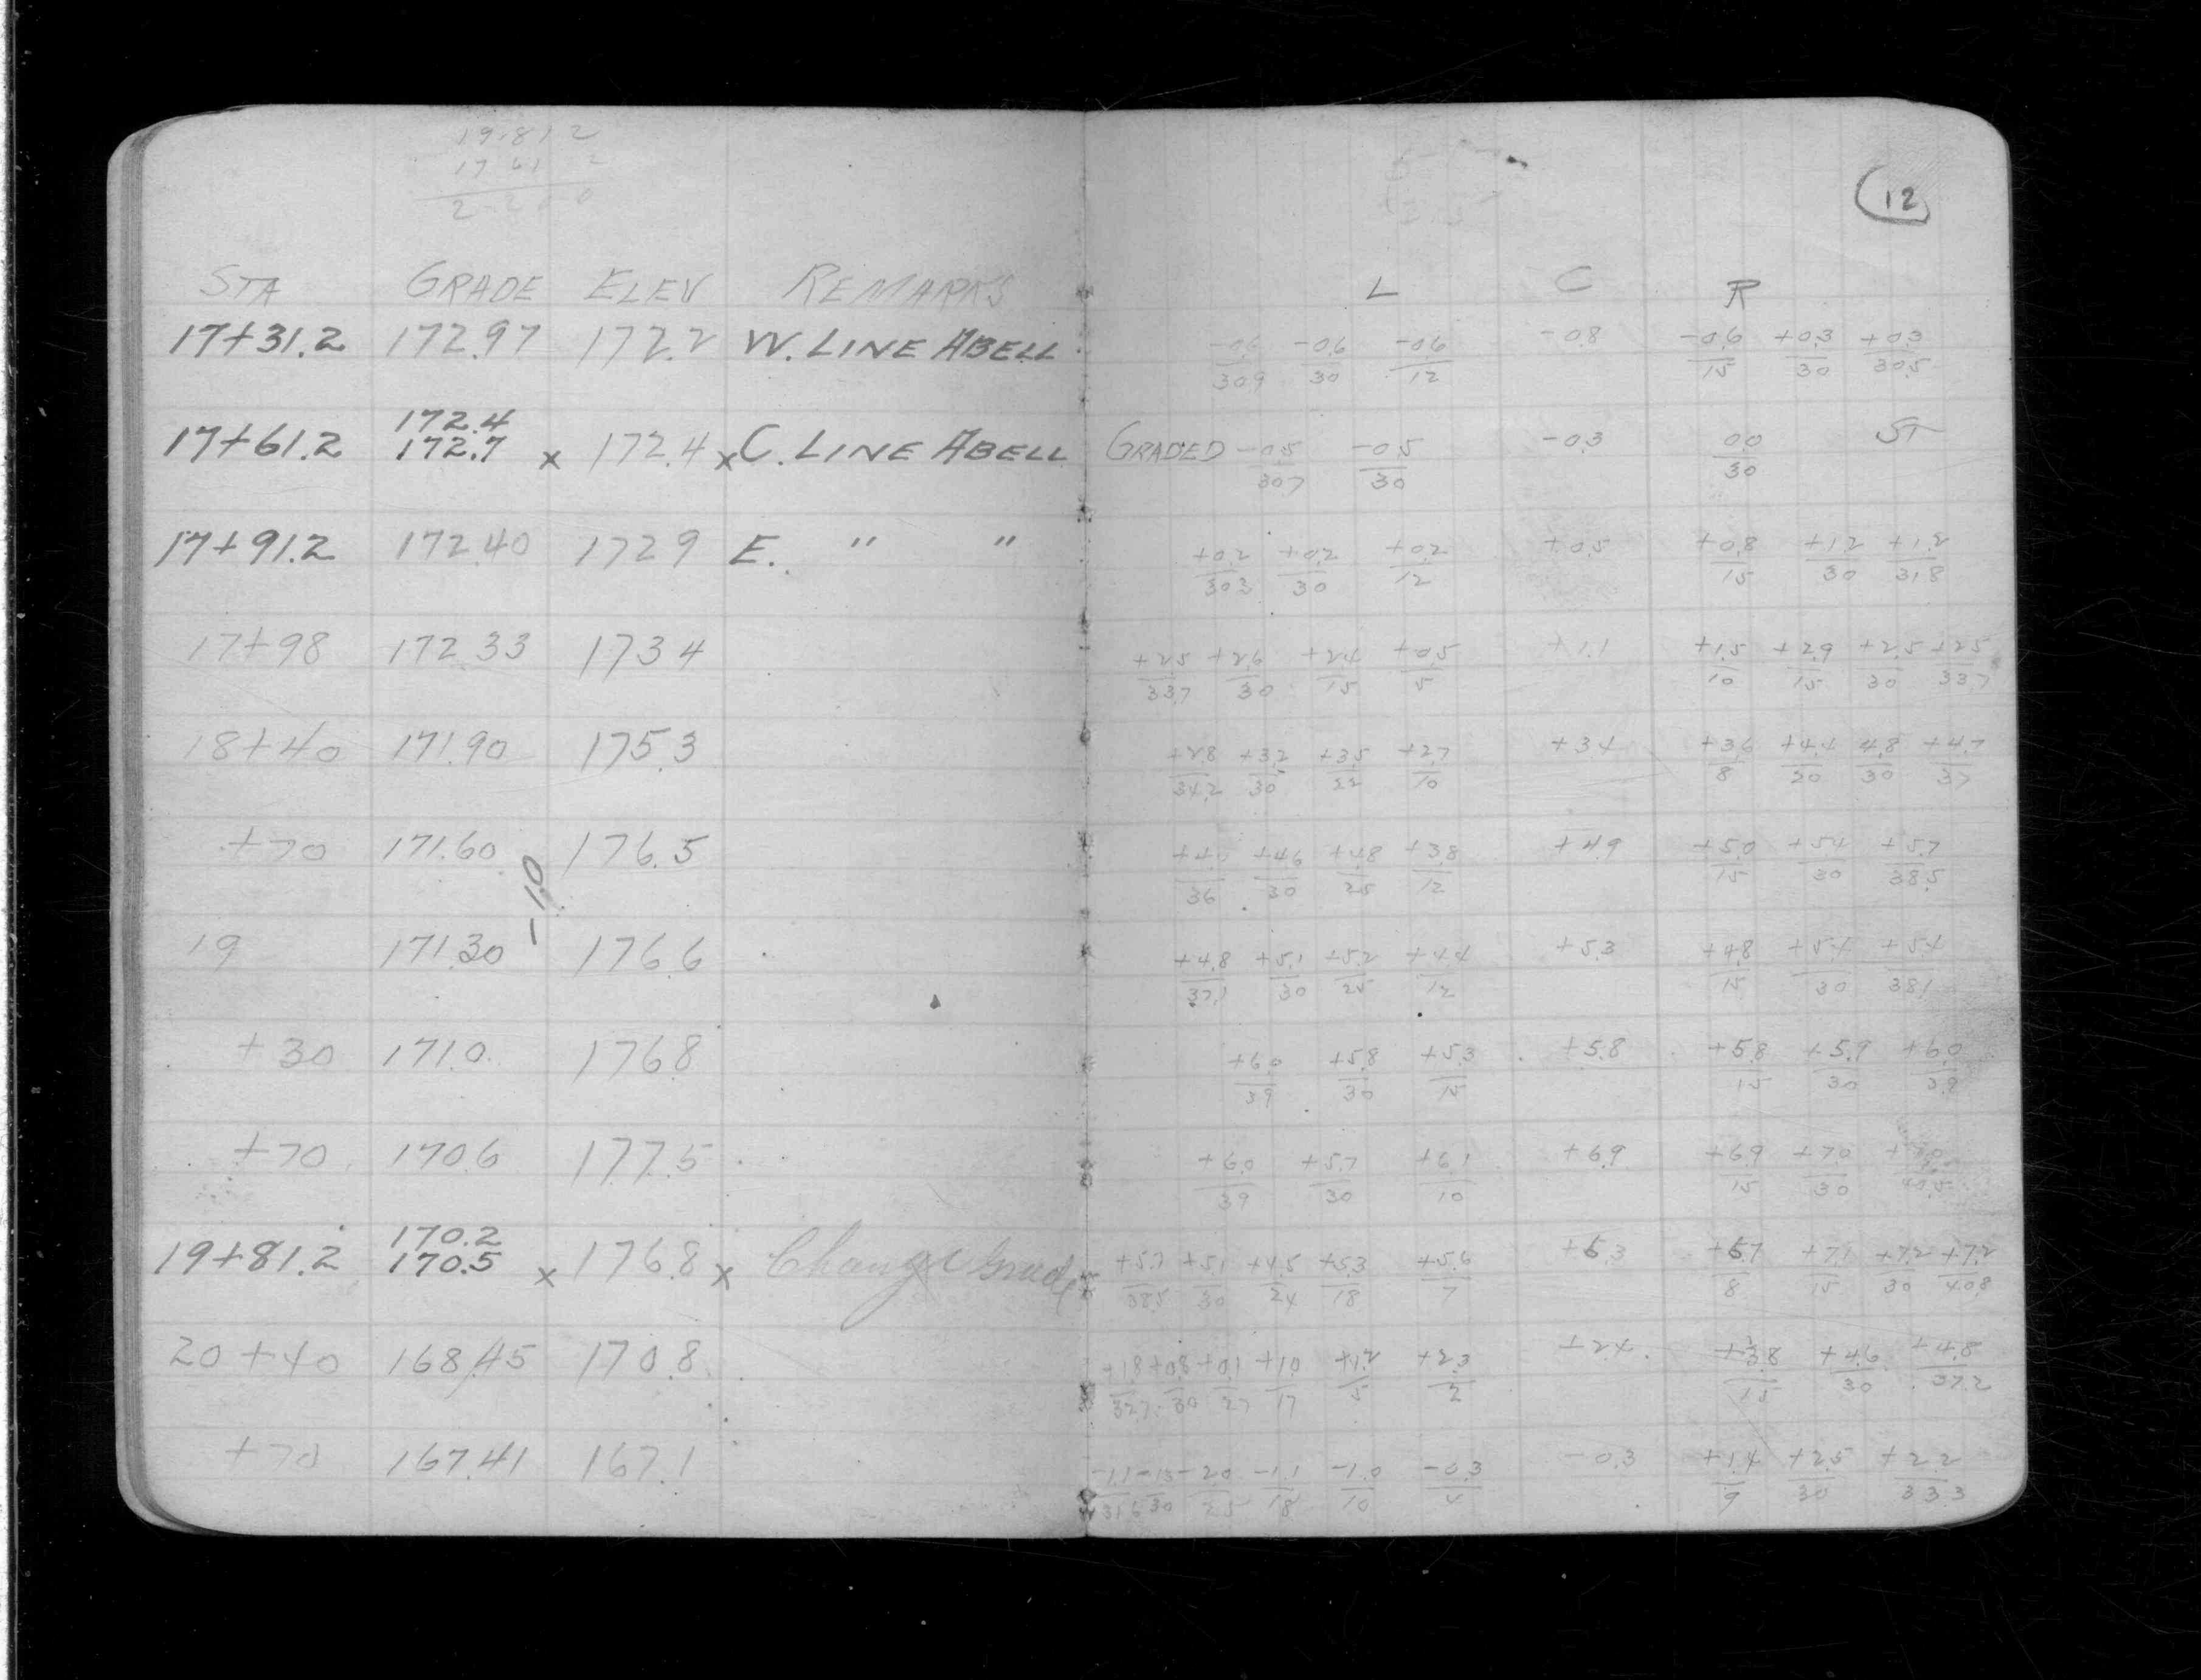 19.812
17 61 2
2 2 0 0
12
STA GRADE ELEV REMARKS L C R
17+31.2 172.97 172.2 W. LINE ABELL -0.6/30.9 -0.6/30 -0.6/12 -0.8 -0.6/15 +0.3/30 +0.3/30.5
172.4
17+61.2 172.7 x 172.4 x C. LINE ABELL GRADED -0.5/30.7 -0.5/30 -0.3 0.0/30 ST
17+91.2 172.40 172.9 E. " " +0.2/30.3 +0.2/30 +0.2/12 +0.5 +0.8/15 +1.2/30 +1.2/31.8
17+98 172.33 173.4 +2.5/33.7 +2.6/30 +2.4/15 +0.5/5 +1.1 +1.5/10 +2.9/15 +2.5/30 +2.5/33.7
18+40 171.90 175.3 +2.8/34.2 +3.2/30 +3.5/22 +2.7/10 +3.4 +3.6/8 +4.4/20 4.8/30 +4.7/37
+70 171.60 176.5 +4.0/36 +4.6/30 +4.8/25 +3.8/12 +4.9 +5.0/15 +5.4/30 +5.7/38.5
-1.0
19 171.30 176.6 +4.8/37.1 +5.1/30 +5.2/25 +4.4/12 +5.3 +4.8/15 +5.4/30 +5.4/38.1
+30 171.0 176.8 +6.0/39 +5.8/30 +5.3/15 +5.8 +5.8/15 +5.9/30 +6.0/39
+70 170.6 177.5 +6.0/39 +5.7/30 +6.1/10 +6.9 +6.9/15 +7.0/30 +7.0/40.5
170.2
19+81.2 170.5 x 176.8 x Change Grade +5.7/38.5 +5.1/30 +4.5/24 +5.3/18 +5.6/7 +6.3 +6.7/8 +7.1/15 +7.2/30 +7.2/40.8
20+40 168.45 170.8 +1.8/32.7 +0.8/30 +0.1/27 +1.0/17 +1.2/5 +2.3/2 +2.4 +3.8/15 +4.6/30 +4.8/37.2
+70 167.41 167.1 -1.1/31.6 -1.3/30 -2.0/25 -1.1/18 -1.0/10 -0.3/4 -0.3 +1.4/9 +2.5/30 +2.2/33.3